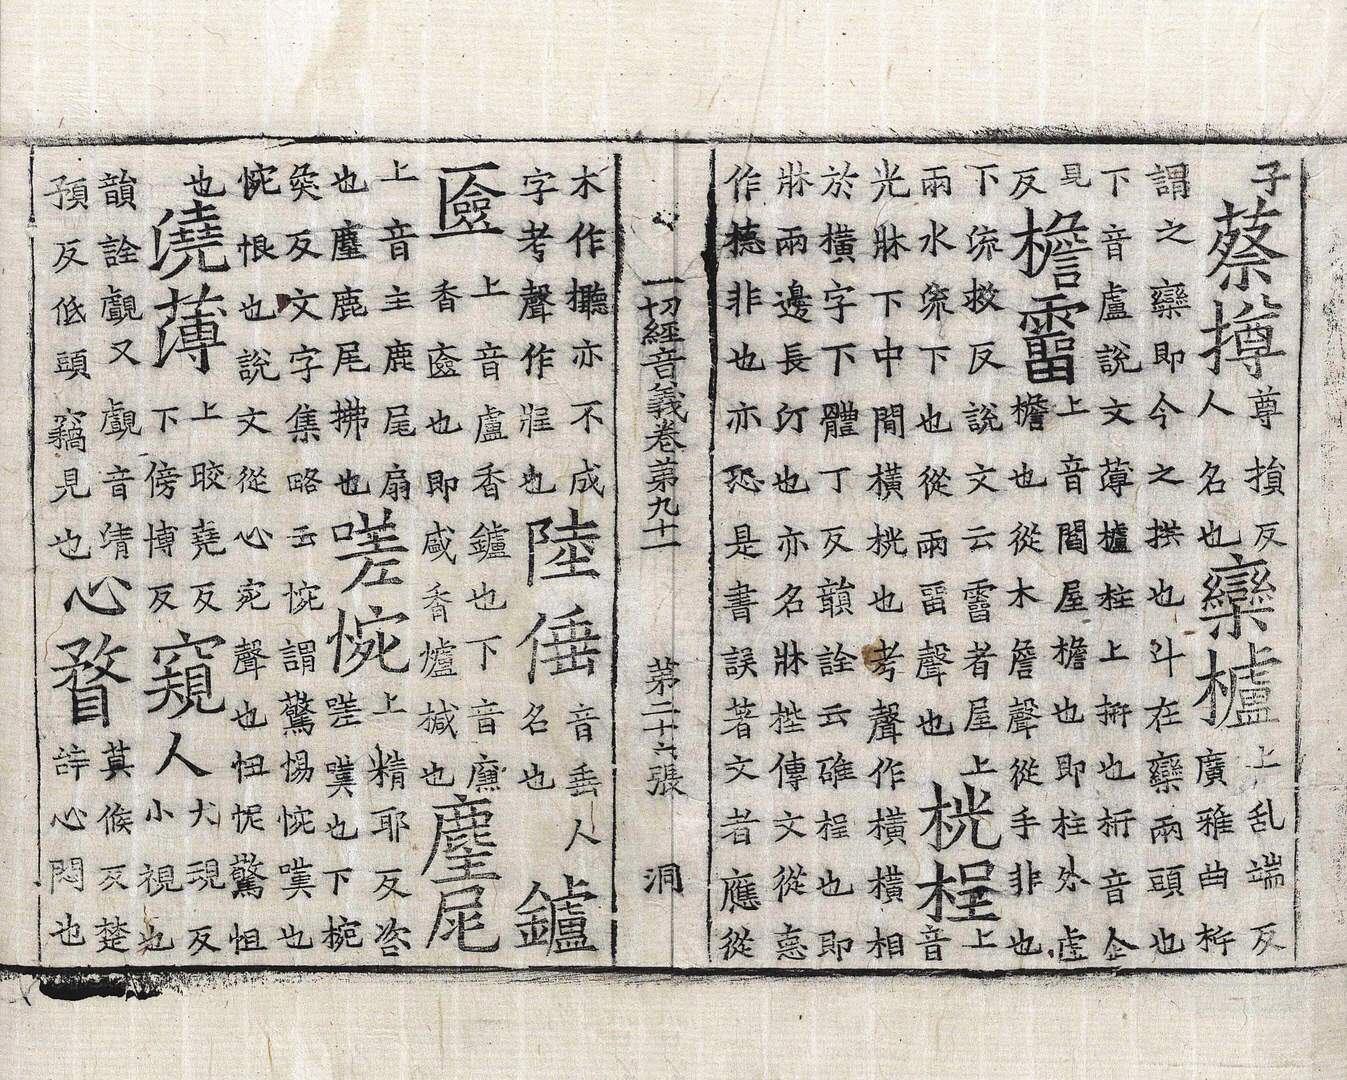 子蔡撙尊損反
人名也欒櫨上乱端反
廣雅曲枅
謂之欒即今之拱也斗在欒兩頭也
下音盧說文薄櫨柱上枅也枅音企
見
反檐霤上音閻屋檐也即柱外虛
檐也從木詹聲從手非也
下流救反說文云霤者屋上
兩水流下也從兩畱聲也桄桯上
音
光牀下中間橫桄也考聲作橫橫相
於橫字下體丁反韻詮云碓桯也即
牀兩邊長朾也亦名牀傳文從意
作檍非也亦恐是書誤著文者應從
一切經音義卷第九十一 第二十六張 洞
木作亦不成
字考聲作也陸倕音垂人
名也鑪
匳上音盧香鑪也下音廉
香匳也即盛香爐椷也麈尾
上音主鹿尾扇
也麈鹿尾拂也嗟惋上精耶反咨
嗟嘆也下椀
奐反文字集略云惋謂驚惕惋嘆也
惋恨也說文從心宛聲也忸怩驚怛
也澆薄上晈堯反
下傍博反窺人犬現反
小視也
韻詮覰又覰音清
預反低頭竊見也心瞀莫候反楚
詩心悶也